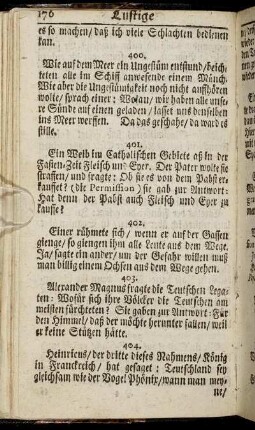 176 Lustige
es so machen/ daß ich viele Schlachten bedienen
kan.
400.
Wie auf dem Meer ein Ungestüm entstund/ beich-
teten alle im Schiff anwesende einem Münch.
Wie aber die Ungestümigkeit noch nicht aufhören
wolte/ sprach einer: Wolan/ wir haben alle unse-
re Sünde auf einen geladen/ lasset uns denselben
ins Meer werffen. Da das geschahe/ da ward es
stille.
401.
Ein Weib im Catholischen Gebiete aß in der
Fasten-Zeit Fleisch und Eyer. Der Pater wolte sie
straffen/ und fragte: Ob sie es von dem Pabst er-
kauffet? (die Permission) sie gab zur Antwort:
Hat denn der Pabst auch Fleisch und Eyer zu
kauffe?
402.
Einer rühmete sich/ wenn er auf der Gassen
gienge/ so giengen ihm alle Leute aus dem Wege.
Ja/ sagte ein ander/ um der Gefahr willen muß
man billig einem Ochsen aus dem Wege gehen.
403.
Alexander Magnus fragte die Teutschen Lega-
ten: Wofür sich ihre Völcker die Teutschen am
meisten fürchteten? Sie gaben zur Antwort: Für
den Himmel/ daß der möchte herunter fallen/ weil
er keine Stützen hätte.
404.
Heinricus/ der dritte dieses Nahmens/ König
in Franckreich/ hat gesaget: Teutschland sey
gleichsam wie der Vogel Phönix/ wann man mey-
ne/